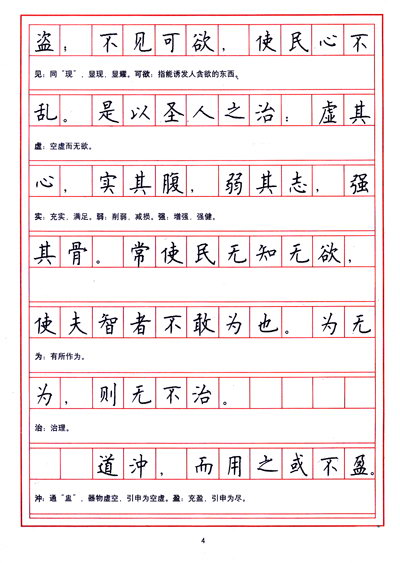 盗；不见可欲，使民心不
见：同“现”，显现、显耀。可欲：指能诱发人贪欲的东西。
乱。是以圣人之治：虚其
虚：空虚而无欲。
心，实其腹，弱其志，强
实：充实、满足。弱：削弱、减损。强：增强、强健。
其骨。常使民无知无欲，
使夫智者不敢为也。为无
为：有所作为。
为，则无不治。
治：治理。
道沖，而用之或不盈。
沖：通“盅”，器物虚空、引申为空虚。盈：充盈、引申为尽。
4